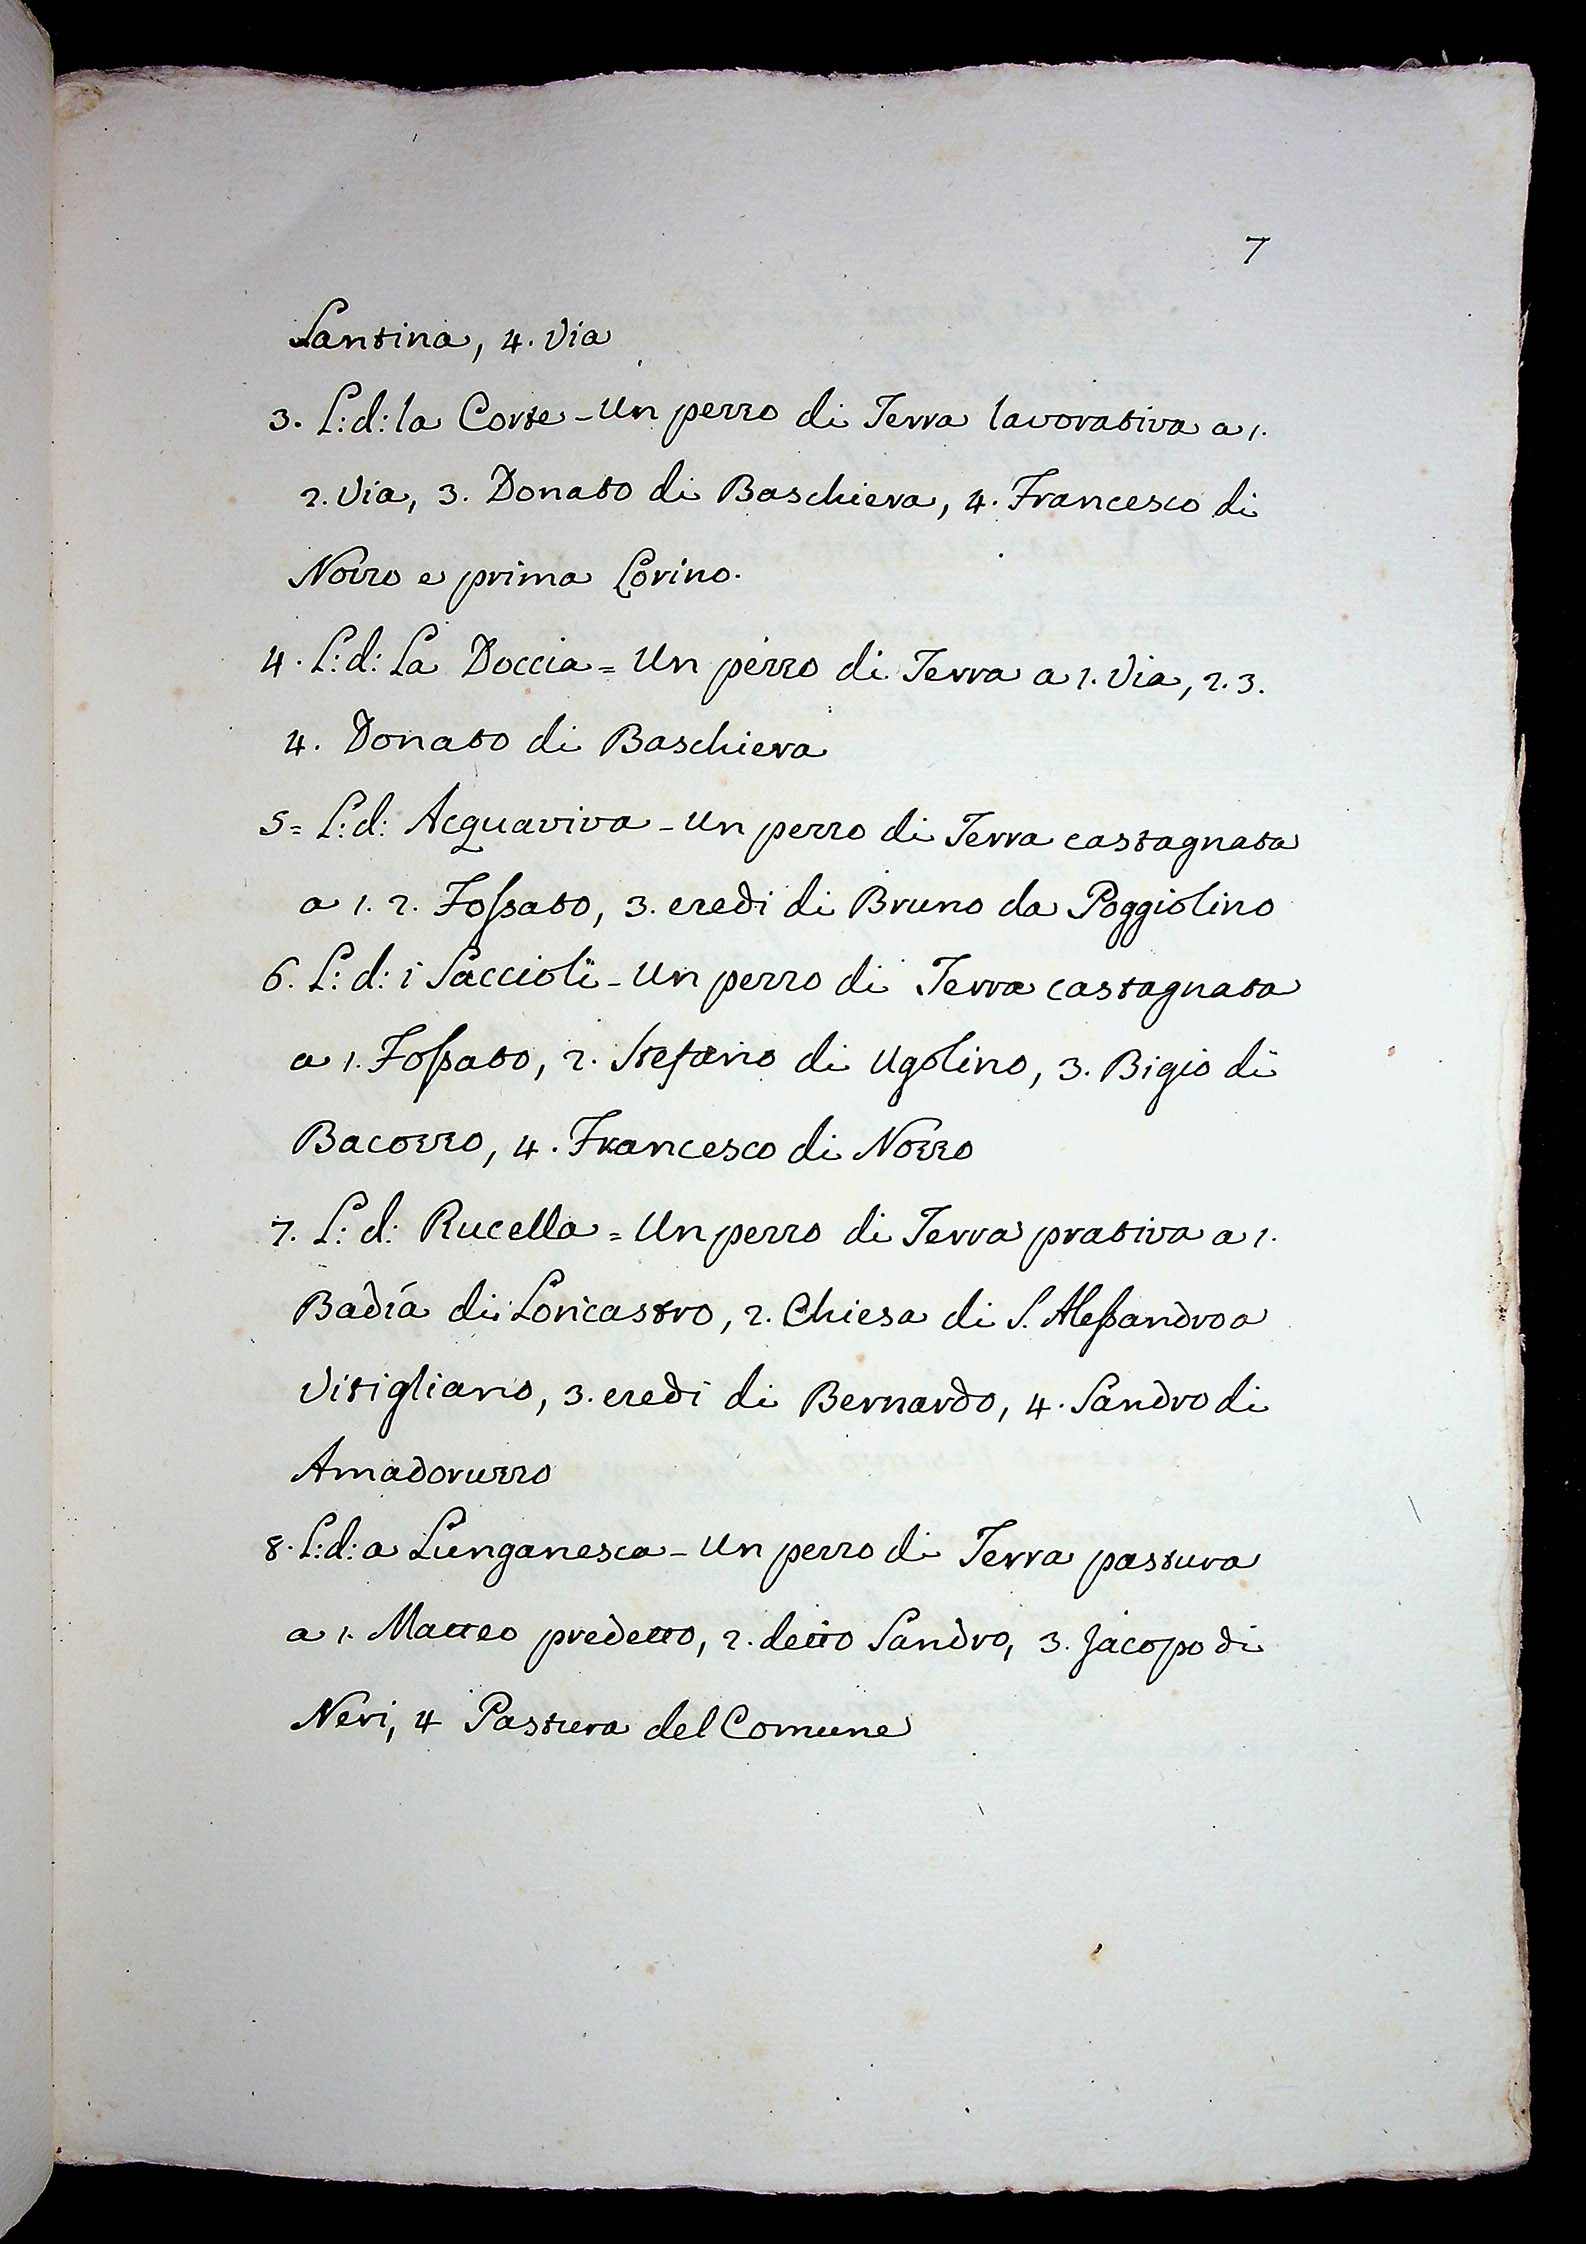 7
Santina, 4. Via
3. L: d: la Corte - Un pezzo di Terra lavorativa a 1.
2. Via, 3. Donato di Baschiera, 4. Francesco di
Nozzo e prima Lorino.
4. L: d: La Doccia = Un pezzo di Terra a 1. Via, 2. 3.
4. Donato di Baschiera
5= L: d: Acquaviva - Un pezzo di Terra castagnata
a 1. 2. Foſsato, 3. eredi di Bruno da Poggiolino
6. L: d: i Saccioli - Un pezzo di Terra castagnata
a 1. Foſsato, 2. Stefano di Ugolino, 3. Bigio di
Bacozzo, 4. Francesco di Nozzo
7. L: d: Rucella = Un pezzo di Terra prativa a 1.
Badía di Loncastro, 2. Chiesa di S. Aleſsandro a
Vitigliano, 3. eredi di Bernardo, 4. Sandro di
Amadoruzzo
8. L: d: a Lunganesca - Un pezzo di Terra pastura
a 1. Matteo predetto, 2. detto Sandro, 3. Jacopo di
Neri, 4 Pastura del Comune